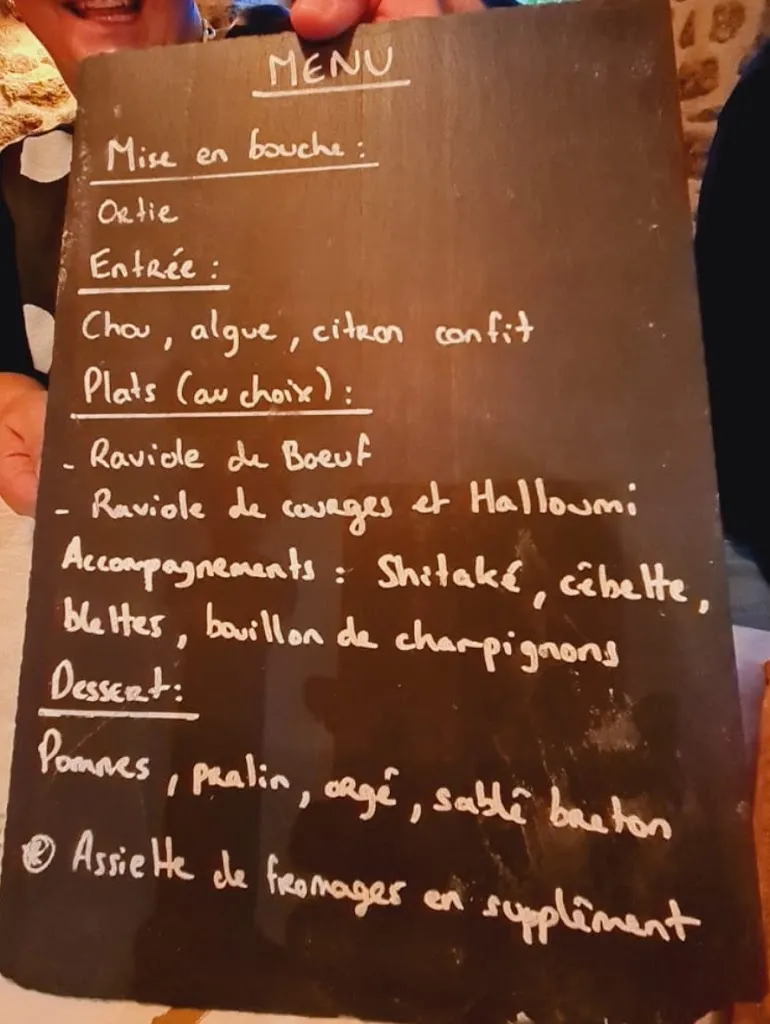 MENU
Mise en bouche :
Ortie
Entrée :
Chou, algue, citron confit
Plats (au choix) :
- Raviole de Boeuf
- Raviole de courges et Halloumi
Accompagnements : Shitaké, cébette,
blettes, bouillon de champignons
Dessert :
Pommes, pralin, orgé, sablé breton
Assiette de fromages en supplément